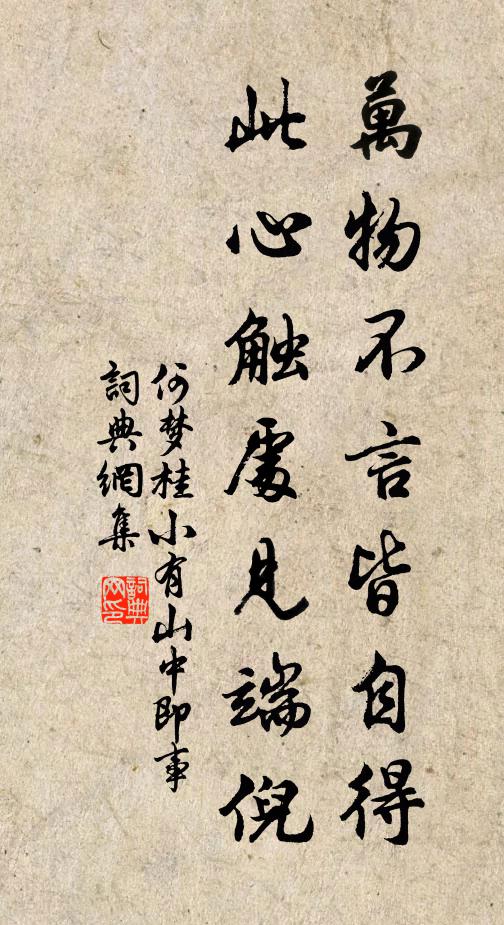 萬物不言皆自得
此心触處見端倪
何梦桂小有山中即事
詞典網集
詞典網印